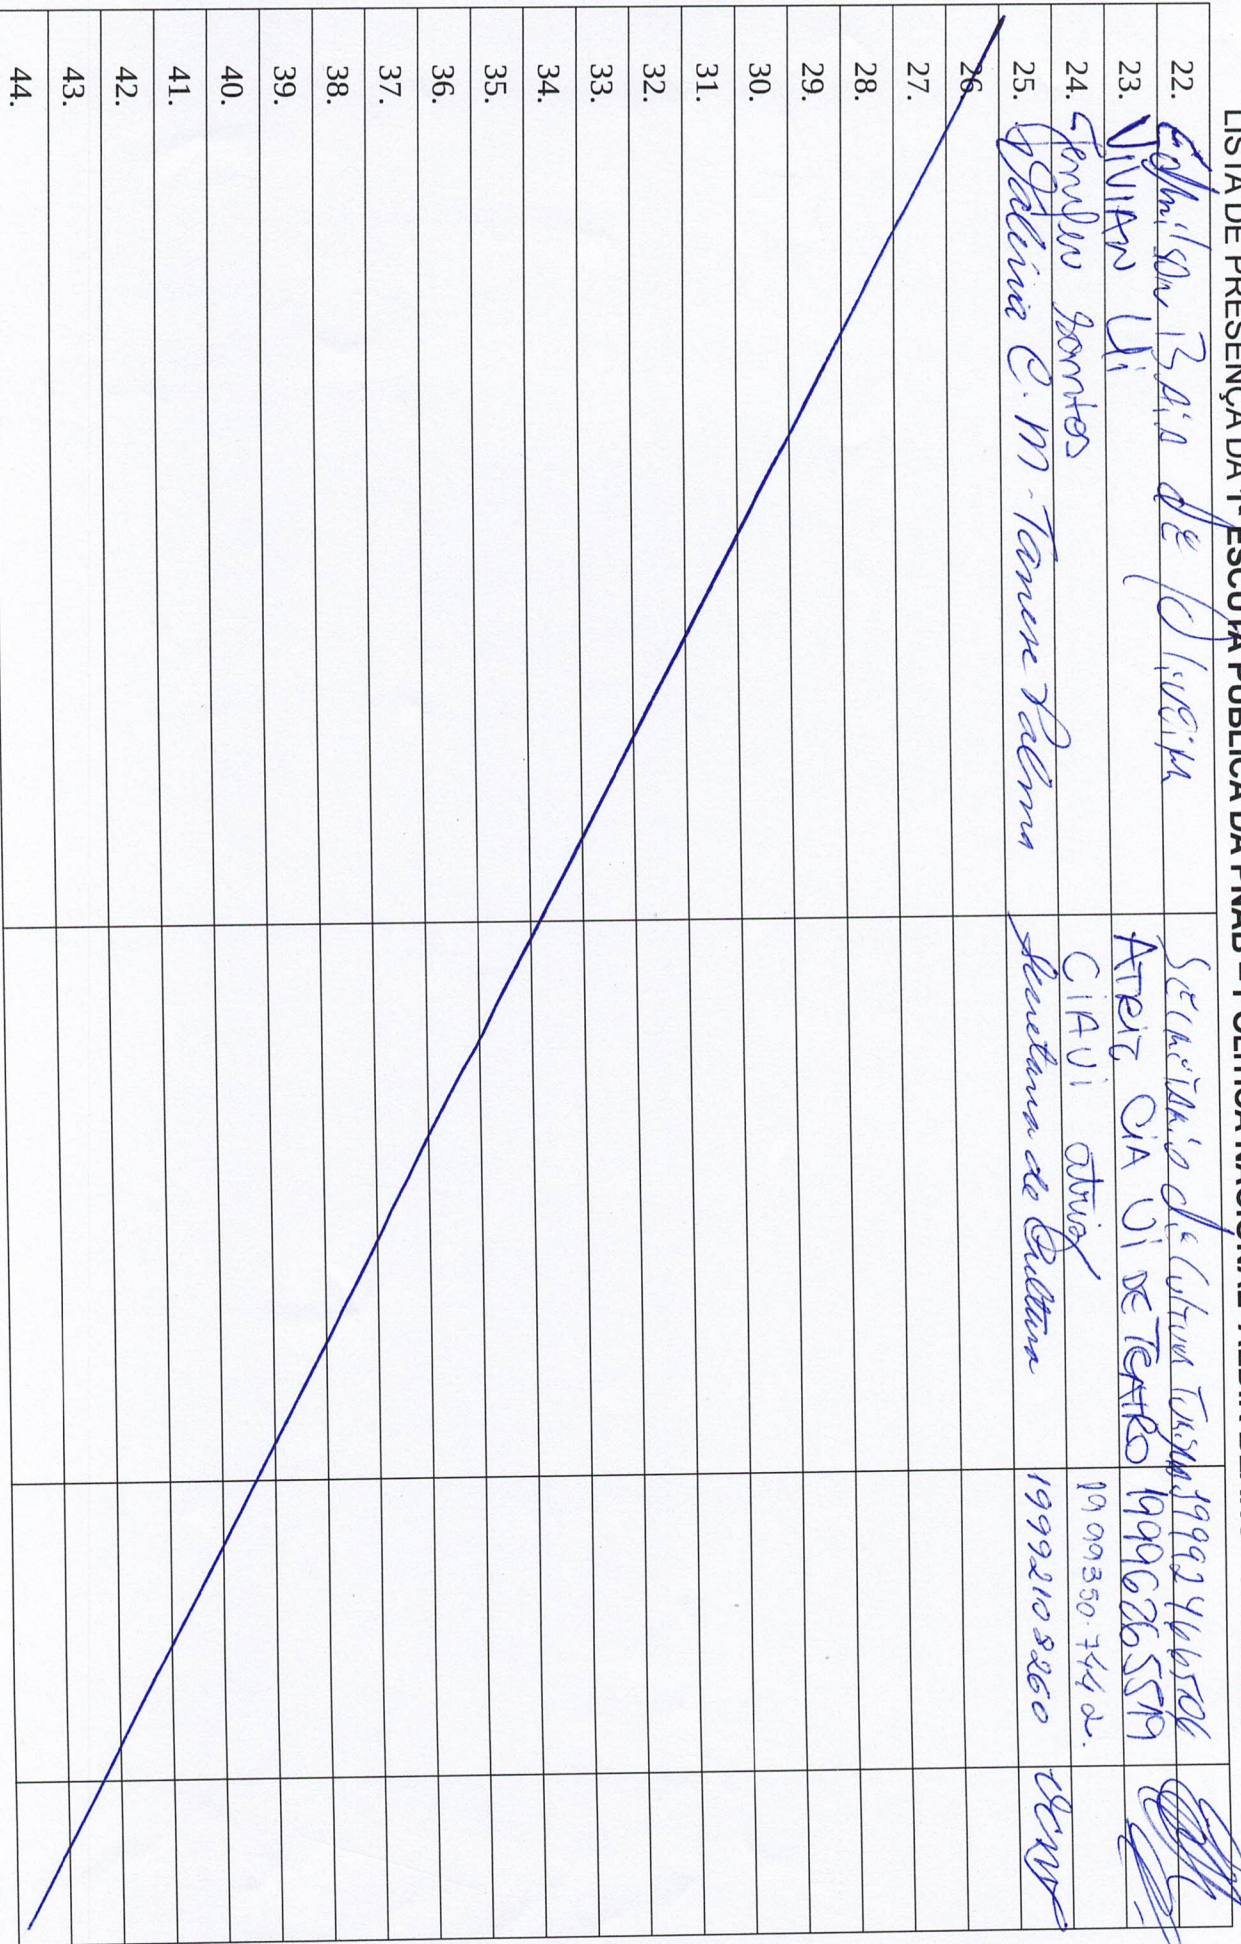 LISTA DE PRESENÇA DA 1ª ESCUTA PÚBLICA DA PNAB – POLÍTICA NACIONAL ALDIR BLANC
22. Edmilson DE Oliveira Secretário de Cultura Turismo
23. VIVIAN Ui ATRIZ CIA UI DE TEATRO 19996265519
24. Santos CIAUI atriz
25. Valéria C. M. Tamese Palma Secretaria de Cultura 19992108260
26.
27.
28.
29.
30.
31.
32.
33.
34.
35.
36.
37.
38.
39.
40.
41.
42.
43.
44.